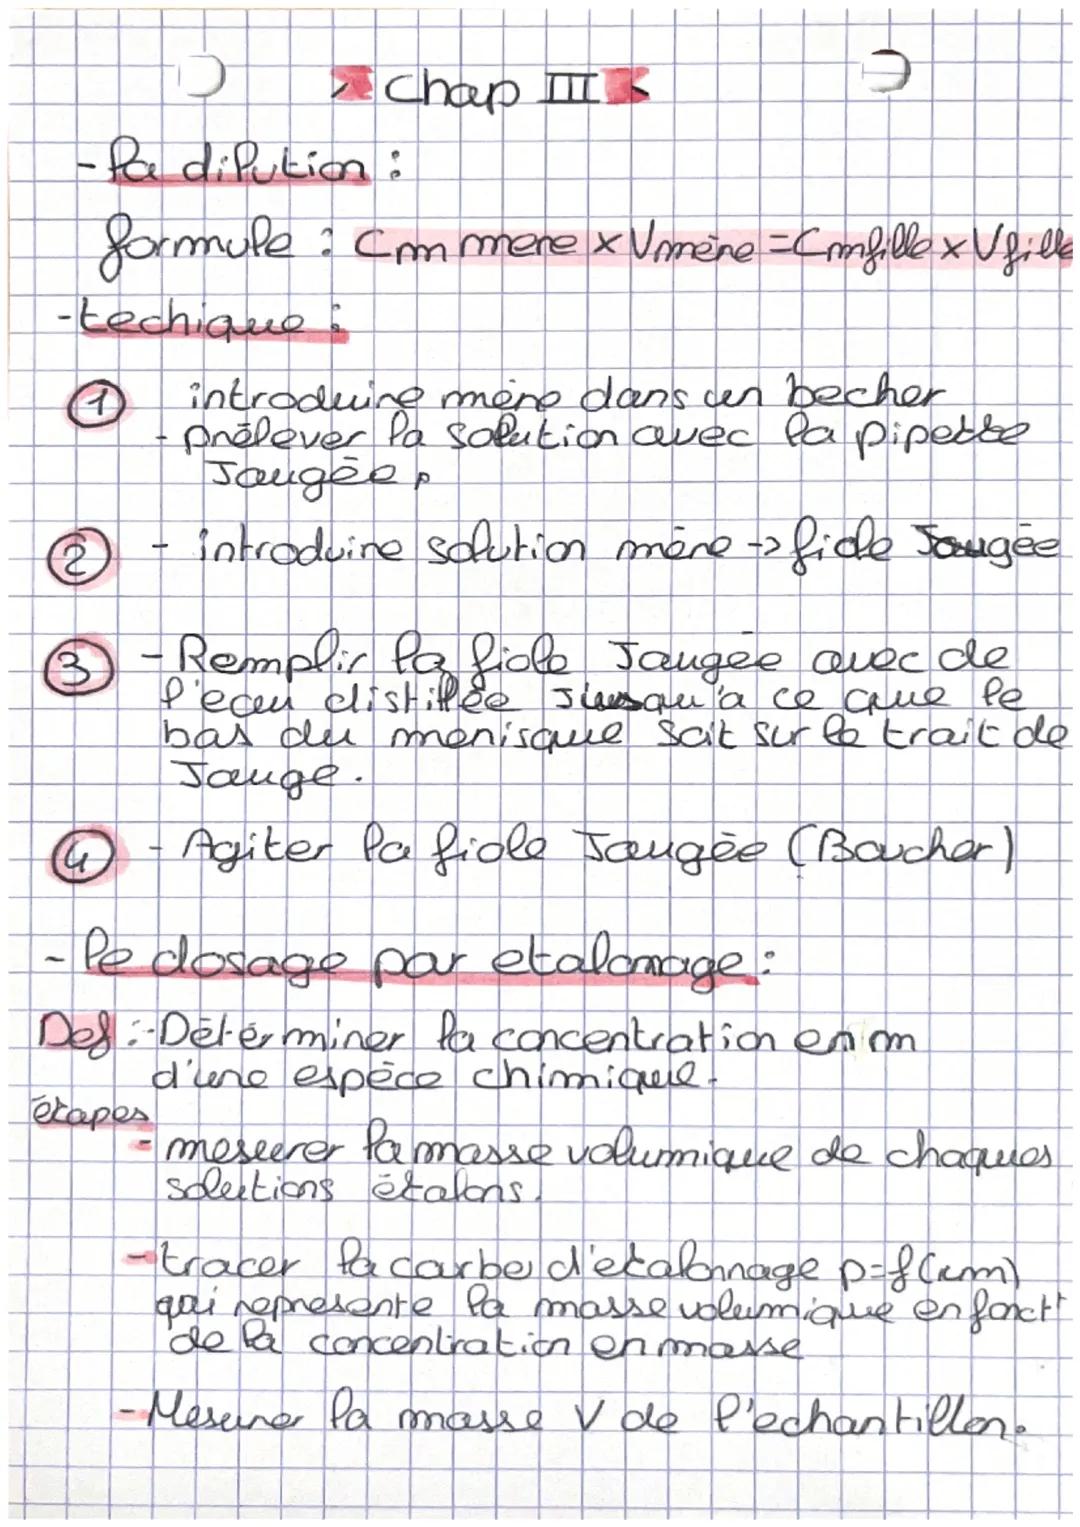 Chap III
- la dilution :
formule : Cm mere x Vmère = Cmfille x Vfille
- techique :
1 introduire mère dans un becher
- prélever la solution avec la pipette
Jaugée,
2 - introduire solution mère -> fiole Jaugée
3 - Remplir la fiole Jaugée avec de
l'eau distillée Jusqu'a ce que le
bas du menisque soit sur le trait de
Jauge.
4 - Agiter la fiole Jaugée (Boucher)
- le dosage par etalonnage :
Def : - Déterminer la concentration en m
d'une espèce chimique.
étapes
- mesurer la masse volumique de chaques
solutions étalons.
- tracer la courbe d'etalonnage p=f(cm)
qui represente la masse volumique en fonct°
de la concentration en masse
- Mesurer la masse V de l'echantillon.